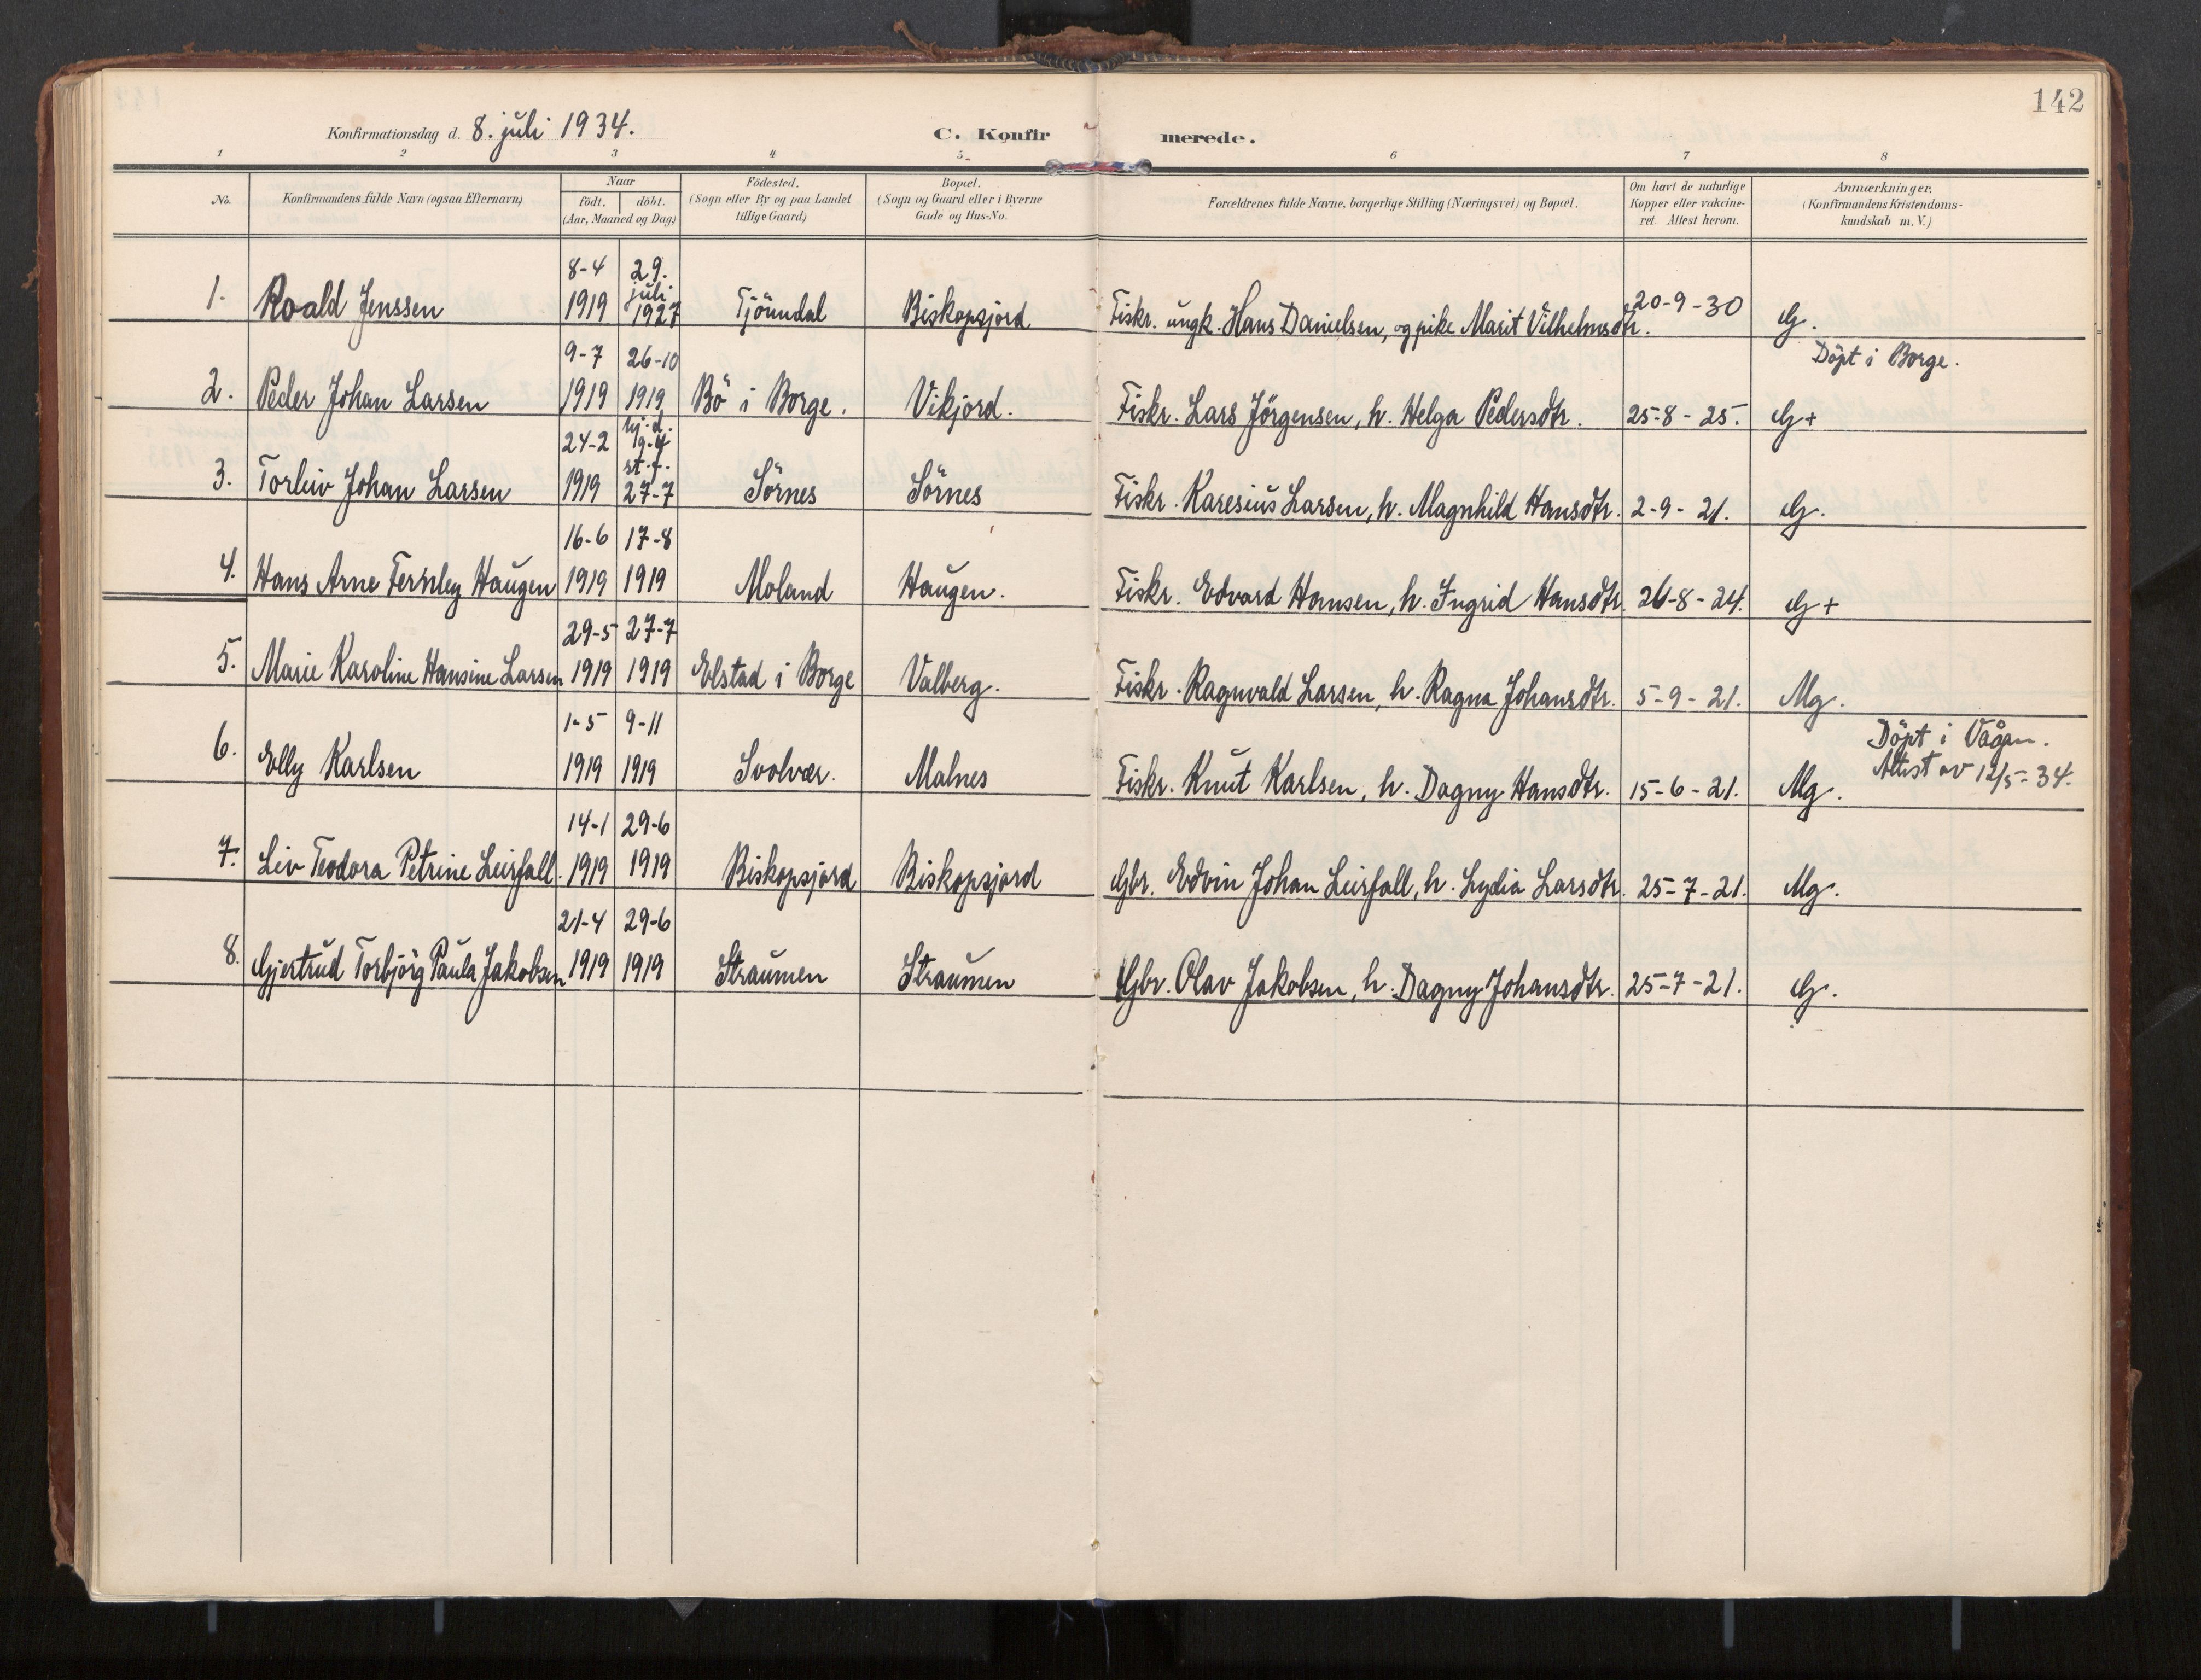 142
Konfirmationsdag d. 8. juli 1934.
C. Konfirmerede.
1 2 3 4 5 6 7 8
No.
Konfirmandens fulde Navn (ogsaa Efternavn)
Naar
födt. döbt.
(Aar, Maaned og Dag)
Födested.
(Sogn eller By og paa Landet
tillige Gaard)
Bopæl.
(Sogn og Gaard eller i Byerne
Gade og Hus-No.
Forældrenes fulde Navne, borgerlige Stilling (Næringsvei) og Bopæl.
Om havt de naturlige
Kopper eller vakcine-
ret. Attest herom.
Anmærkninger.
(Konfirmandens Kristendoms-
kundskab m. V.)
8-4 29. juli
1. Roald Jenssen 1919 1927 Tjöundal Biskopsjord Fiskr. ungk. Hans Danielsen, og pike Marit Vilhelmsdtr. 20-9-30 G.
9-7 26-10 Döpt i Borge.
2. Peder Johan Larsen 1919 1919 Bö i Borge. Vikjord. Fiskr. Lars Jörgensen, h. Helga Pedersdtr. 25-8-25. G+
24-2 hj.d. 9-4 st.f.
3. Torleiv Johan Larsen 1919 27-7 Sörnes Sörnes Fiskr. Karesius Larsen, h. Magnhild Hansdtr. 2-9-21. G.
16-6 17-8
4. Hans Arne Fernley Haugen 1919 1919 Moland Haugen. Fiskr. Edvard Hansen, h. Ingrid Hansdtr. 26-8-24. G+
29-5 27-7
5. Marie Karoline Hansine Larsen 1919 1919 Elstad i Borge Valberg. Fiskr. Ragnvald Larsen, h. Ragna Johansdtr. 5-9-21. Mg.
1-5 9-11 Döpt i Vågan.
6. Elly Karlsen 1919 1919 Svolvær. Malnes Fiskr. Knut Karlsen, h. Dagny Hansdtr. 15-6-21. Mg. Attest av 12/5-34.
14-1 29-6
7. Liv Teodora Petrine Leirfall. 1919 1919 Biskopsjord Biskopsjord Gbr. Edvin Johan Leirfall, h. Lydia Larsdtr. 25-7-21. Mg.
21-4 29-6
8. Gjertrud Torbjörg Paula Jakobsen 1919 1919 Straumen Straumen Gbr. Olav Jakobsen, h. Dagny Johansdtr. 25-7-21. G.